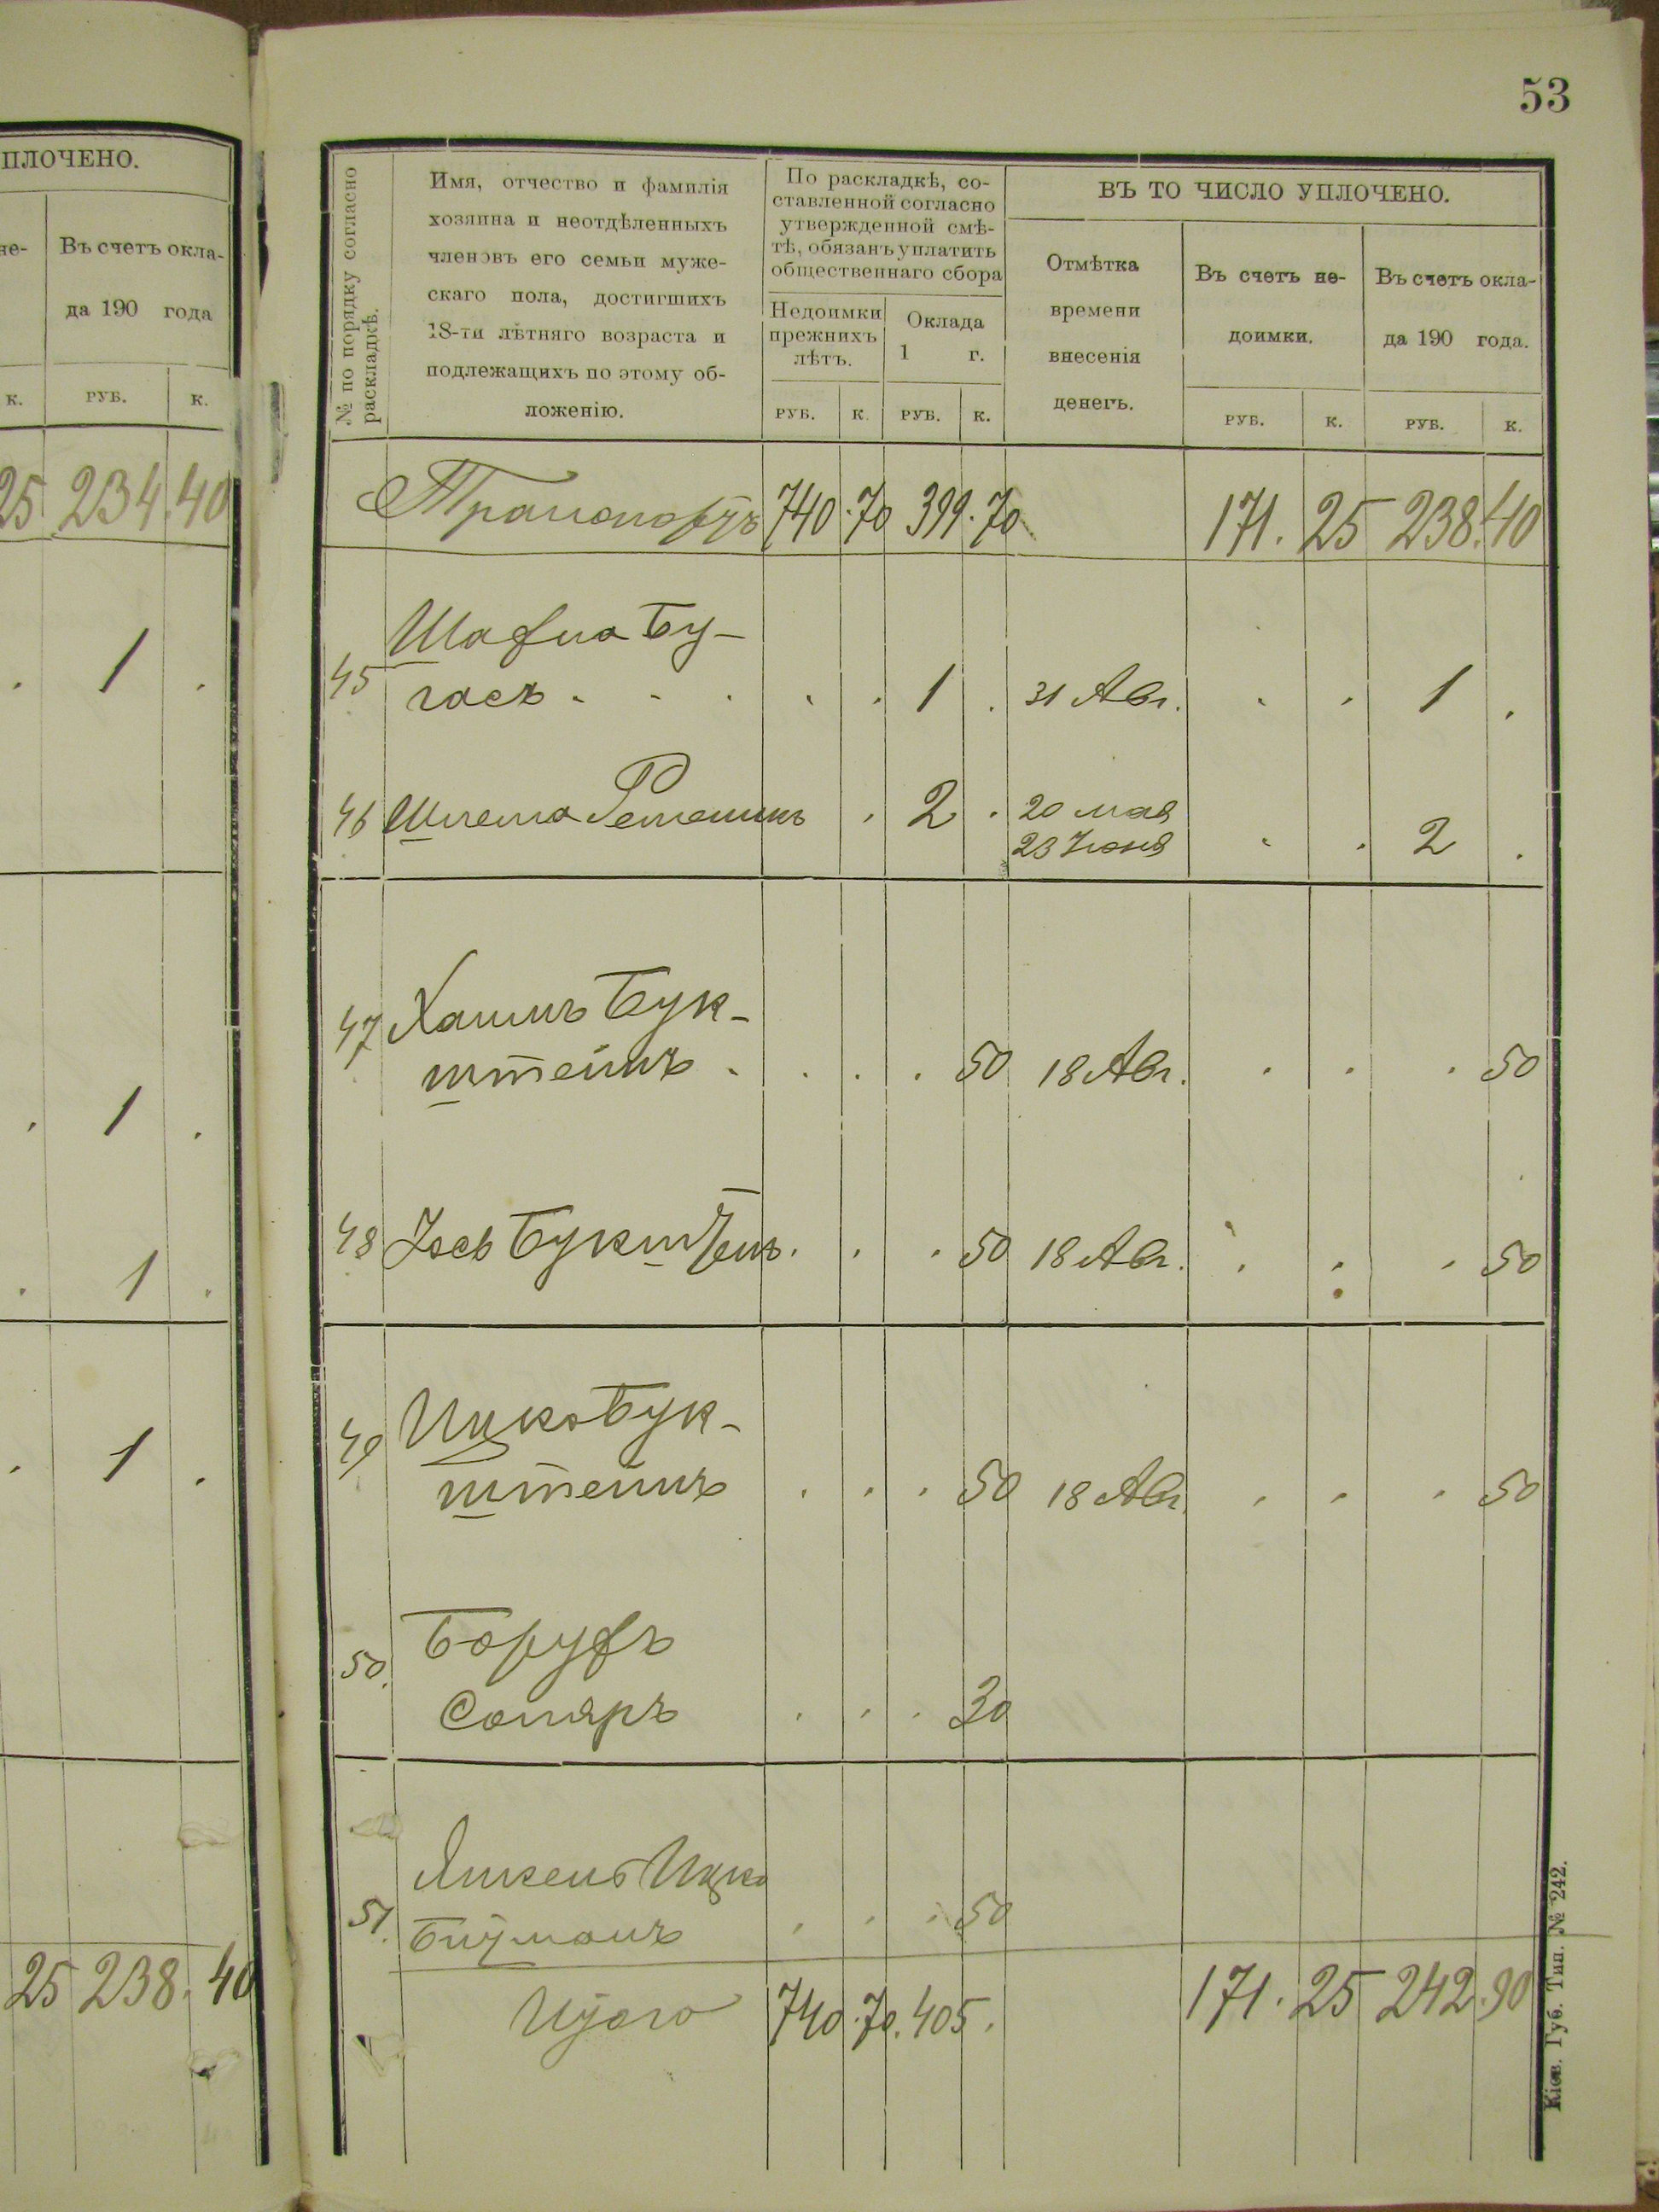 53
ПЛОЧЕНО.
не-
Въ счетъ окла-
да 190 года
к. РУБ. к.
25 234. 40
. 1 .
. 1 .
. 1 .
. 1 .
25 238. 40
№ по порядку согласно
раскладкѣ.
Имя, отчество и фамилія
хозяина и неотдѣленныхъ
членовъ его семьи муже-
скаго пола, достигшихъ
18-ти лѣтняго возраста и
подлежащихъ по этому об-
ложенію.
По раскладкѣ, со-
ставленной согласно
утвержденной смѣ-
тѣ, обязанъ уплатить
общественнаго сбора
Недоимки
прежнихъ
лѣтъ.
Оклада
1 г.
РУБ. к. РУБ. к.
ВЪ ТО ЧИСЛО УПЛОЧЕНО.
Отмѣтка
времени
внесенія
денегъ.
Въ счетъ не-
доимки.
Въ счетъ окла-
да 190 года.
РУБ. к. РУБ. к.
Транспортъ 740. 70 399. 70 171. 25 238. 40
Шафна Бу-
45 гасъ . . . . . 1 . 31 Авг. . . 1 .
46 Шлема . 2 . 20 мая
23 Іюня . . 2 .
47 Хаимъ Бук-
штейнъ . . . . 50 18 Авг. . . . 50
48 Іосъ Букштейнъ . . . 50 18 Авг. . . . 50
49 Ицко Бук-
штейнъ . . . 50 18 Авг. . . . 50
50. Боруфъ
Соляръ . . . 30
Янкель Ицко
51. . . . 50
Итого 740. 70. 405. 171. 25 242. 90
Кіев. Губ. Тип. № 242.